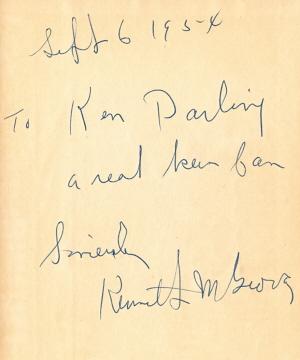 Sept 6 1954
To Ken Darling
a real keen fan
Sincerely
Kenneth